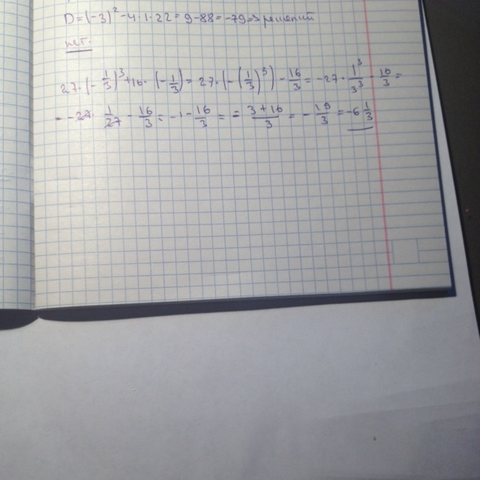 D = (-3)² - 4·1·22 = 9 - 88 = -79 => решений
нет.
27·(-1/3)³ + 16·(-1/3) = 27·(-(1/3)³) - 16/3 = -27·1³/3³ - 16/3 =
= -27·1/27 - 16/3 = -1 - 16/3 = = 3+16/3 = -19/3 = -6 1/3